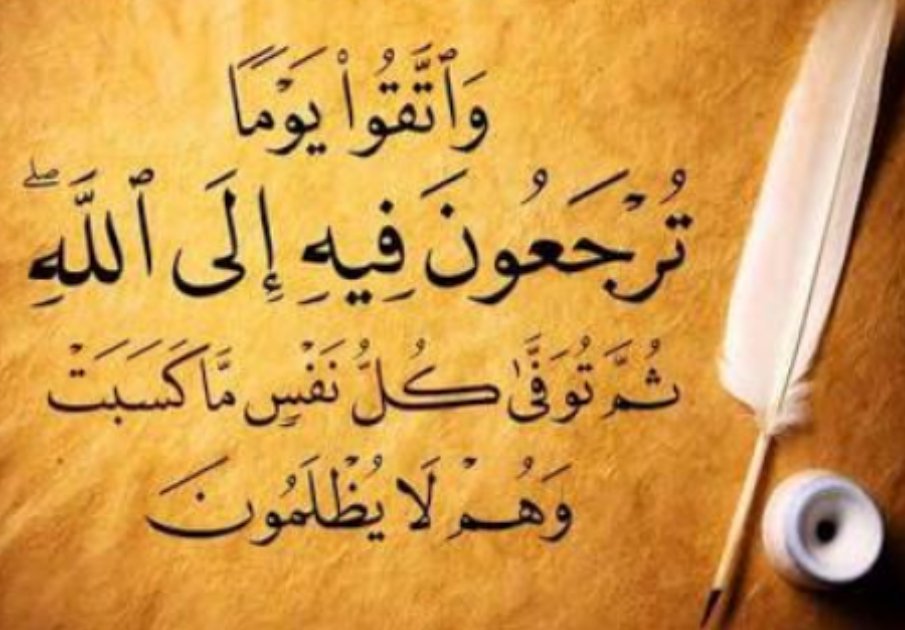 وَٱتَّقُوا۟ يَوْمًا
تُرْجَعُونَ فِيهِ إِلَى ٱللَّهِ ۖ
ثُمَّ تُوَفَّىٰ كُلُّ نَفْسٍ مَّا كَسَبَتْ
وَهُمْ لَا يُظْلَمُونَ